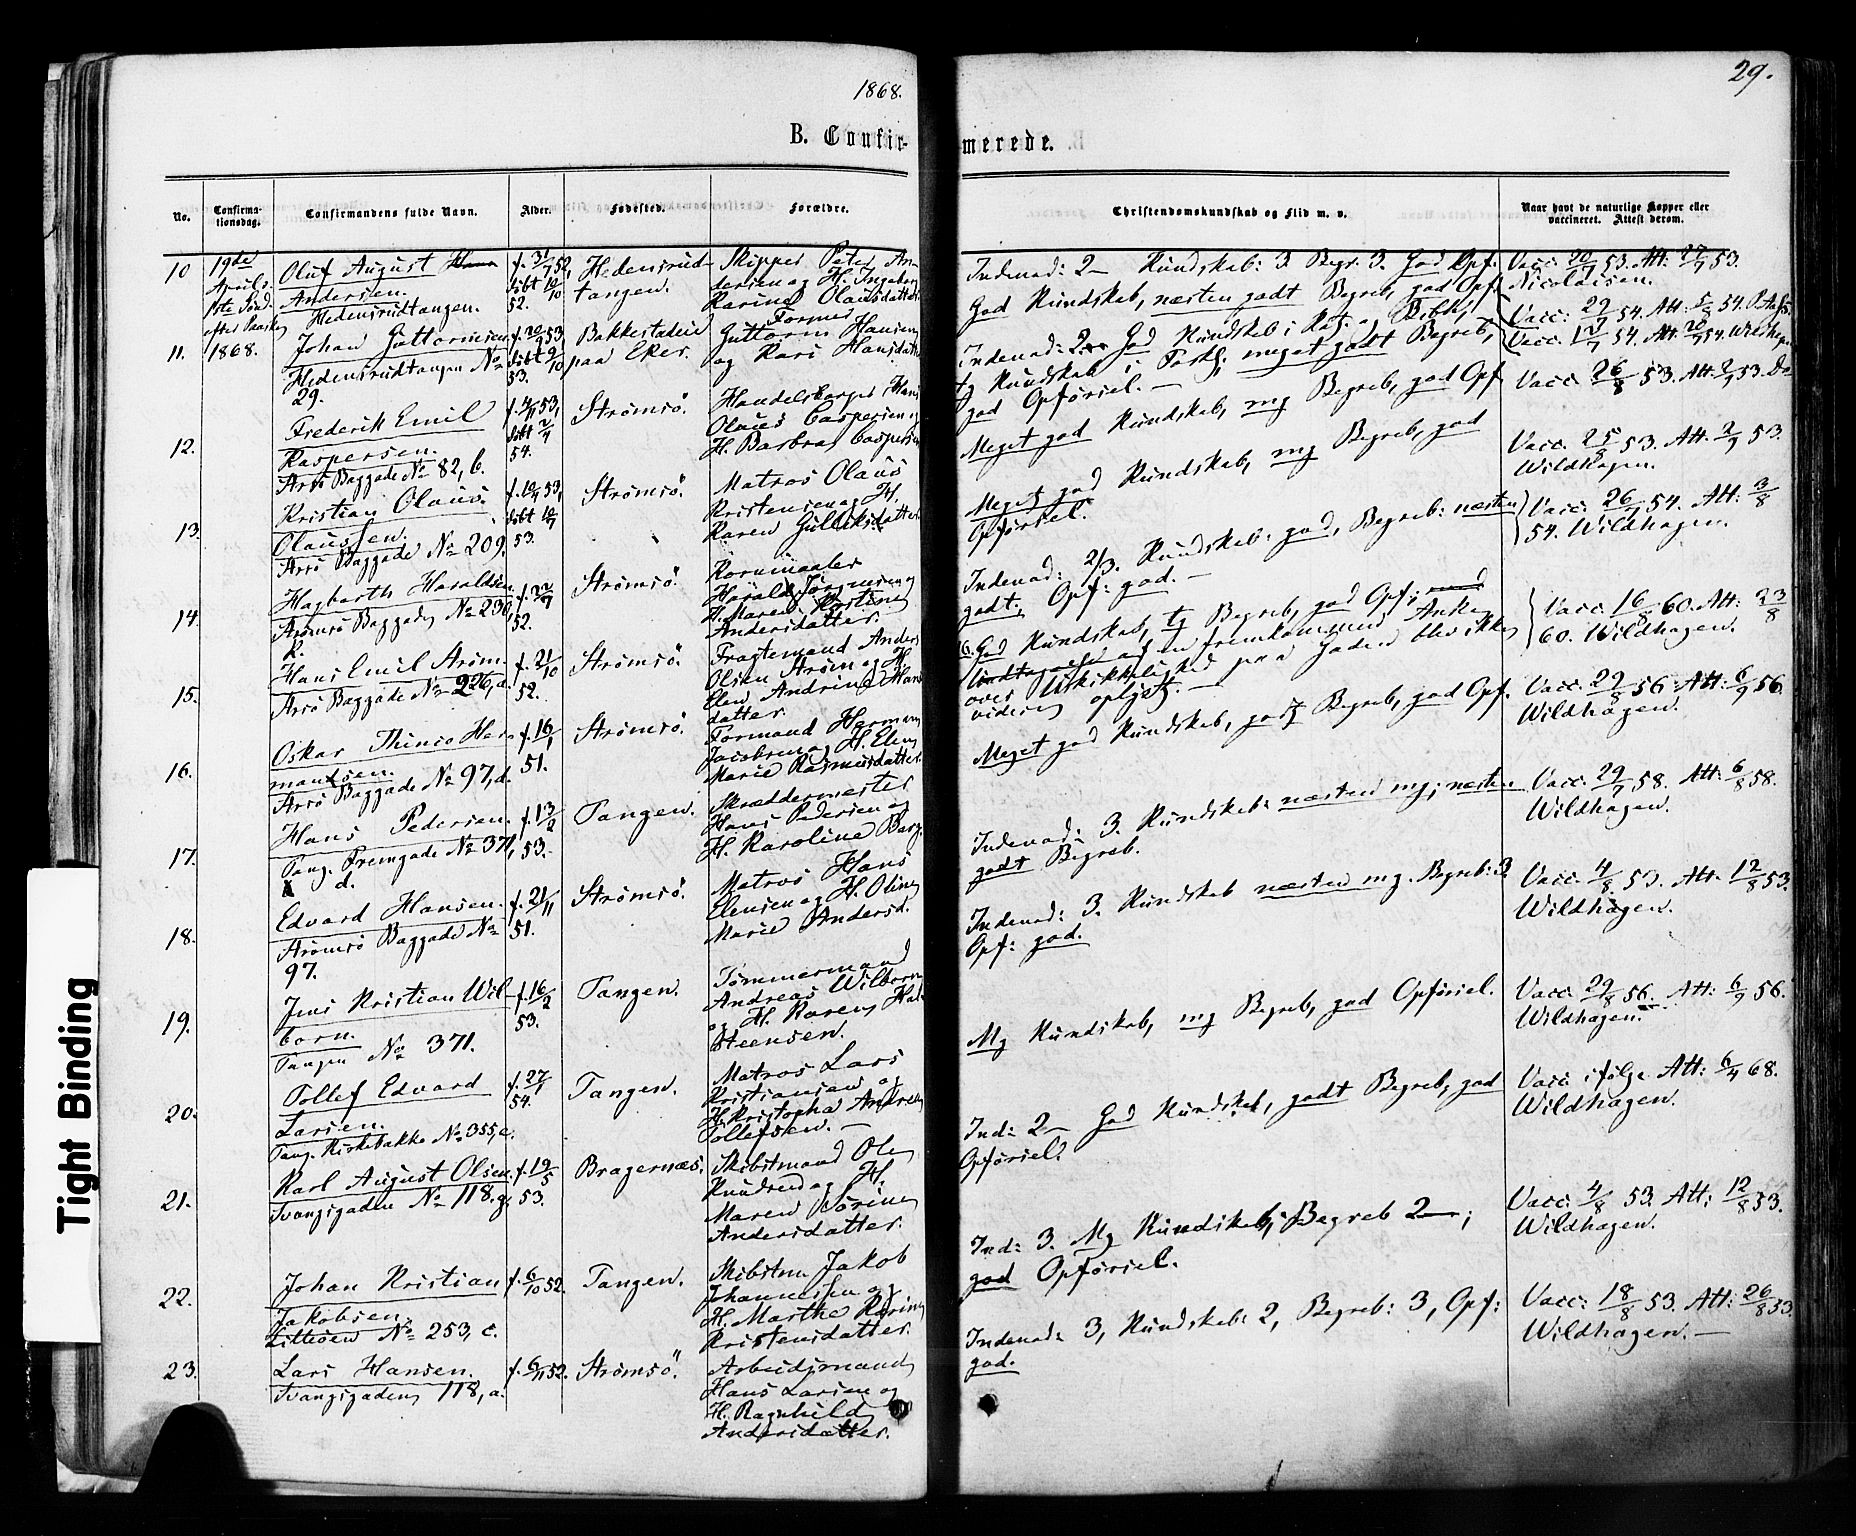 1868.
29.
B. Confir-
merede.
No.
Confirma-
tionsdag.
Confirmandens fulde Navn.
Alder.
Fødested.
Forældre.
Christendomskundskab og Flid m. v.
Naar havt de naturlige Kopper eller
vaccineret. Attest derom.
10
19de
Aprils
1ste Sønd.
efter Paaske
1868.
Oluf August
Andersen.
Hedensrudtangen.
f. 31/7 52,
døbt 10/10
52.
Hedensrud-
tangen.
Skipper Peter An-
dersen og H. Ingeborg
Karine Olausdatter
Indenad: 2— Kundskab: 3. Begr: 3. God Opf.
God Kundskab, næsten godt Begreb, god Opf.
Vacc: 20/7 53. Att: 27/7 53.
Nicolaisen.
11.
Johan Guttormsen
Hedensrudtangen No
29.
døbt 9/10
53.
Bakkestalene
paa Eker.
Former
Guttorm Hansen
og Kari Hansdatter
Indenad: 2 God Kundskab i Kat. og Bibh.,
tg Kundskab i Forkl. meget godt Begreb,
god Opførsel.—
Vacc: 29/7 54. Att. 5/8 54.
Vacc: 54. Att. 54. Wildhagen
12.
Frederik Emil
Kaspersen.
Strsø Baggade No 82, b.
f. 4/9 53,
døbt 2/4
54.
Strømsø.
Handelsborger Hans
Olaus Caspersen og
H. Barbra Caspersen
Meget god Kundskab, mg Begreb, god Opf
Vacc: 26/8 53. Att. 2/9 53. Do
13.
Kristian Olaus
Olaussen.
Strsø Baggade No 209.
døbt
53.
Strømsø.
Matros Olaus
Kristensen og H.
Karen Gulliksdatter
Meget god Kundskab, mg Begreb, god
Opførsel.
Vacc. 25/8 53. Att. 2/9 53.
Wildhagen.
14.
Hagbarth Haraldsen
Strømsø Baggade No 230,
k.
52.
Strømsø.
Kornmaaler
Harald Jørgensen og
H. Maren Kirstine
Andersdatter.
Indenad: 2/3. Kundskab: god, Begreb: næsten
godt; Opf: god.—
Vacc. 26/7 54. Att: 3/8
54. Wildhagen.
15.
Hans Emil Strøm.
Strsø Baggade No 226, a.
f. 21/10
52.
Strømsø.
Fragtemand Anders
Olsen Strøm og H.
Elen Andrine Hans
datter.
God Kundskab, tg Begreb, god Opf;
en fremkommen Anke
over Uskikkelighed paa Gaden blev ikke
videre oplyst.—
Vacc. 16/8 60. Att: 23/8
60. Wildhagen.
16.
Oskar Thinus Her-
mansen.
Strsø Baggade No 97, d.
f. 16/1
51.
Strømsø.
Formand Herman
Jacobsen og H. Elen
Marie Rasmusdatter.
Meget god Kundskab, godt Begreb, god Opf.
Vacc. 29/8 56. Att: 6/9 56.
Wildhagen.
17.
Hans Pedersen.
Tang. Fremgade No 371,
d.
f. 13/2
53.
Tangen.
Skræddermester
Hans Pedersen og
H. Karoline Berg.
Indenad: 3. Kundskab: næsten mg; næsten
godt Begreb.
Vacc. 29/7 58. Att: 6/8 58.
Wildhagen.
18.
Edvard Hansen.
Strømsø Baggade No
97.
f. 21/11
51.
Strømsø.
Matros Hans
Elensen og H. Oline
Marie Andersd.
Indenad: 3. Kundskab næsten mg. Begreb: 3.
Opf: god.
Vacc. 4/8. 53. Att. 12/8 53.
Wildhagen.
19.
Jens Kristian Wil-
born.
Tangen No 371.
f. 16/2
53.
Tangen.
Tømmermand
Andreas Wilborn
og H. Karen
Steensen.
Mg Kundskab, mg Begreb, god Opførsel.
Vacc. 29/8 56. Att: 6/9 56.
Wildhagen.
20.
Tollef Edvard
Larsen.
Tang. Kirkebakke No 355, c.
f. 27/1
54.
Tangen.
Matros Lars
Kristiansen og
H. Kristopha Andrea
Tollefsen.—
Ind: 2— God Kundskab, godt Begreb, god
Opførsel.
Vacc: ifølge Att: 6/4 68.
Wildhagen.
21.
Karl August Olsen.
Svangsgaden No 118. g.
f. 19/5
53.
Bragernæs.
Skibstmand Ole
Knudsen og H.
Maren Sørine
Andersdatter.
Ind: 3. Mg Kundskab, Begreb 2—;
god Opførsel.
Vacc: 4/8 53. Att: 12/8 53.
Wildhagen.
22.
Johan Kristian
Jakobsen.
Lilleøen No 253, c.
f. 6/10 52.
Tangen.
Skibstm. Jakob
Johannessen og
H. Marthe Karine
Kristensdatter.
Indenad: 3, Kundskab: 2, Begreb: 3, Opf:
god.
Vacc: 18/8 53. Att: 26/8 53.
Wildhagen.—
23.
Lars Hansen.
Svangsgaden 118, a.
f. 6/11 52.
Strømsø.
Arbeidsmand
Hans Larsen og
H. Ragnhild
Andersdatter.
Tight Binding